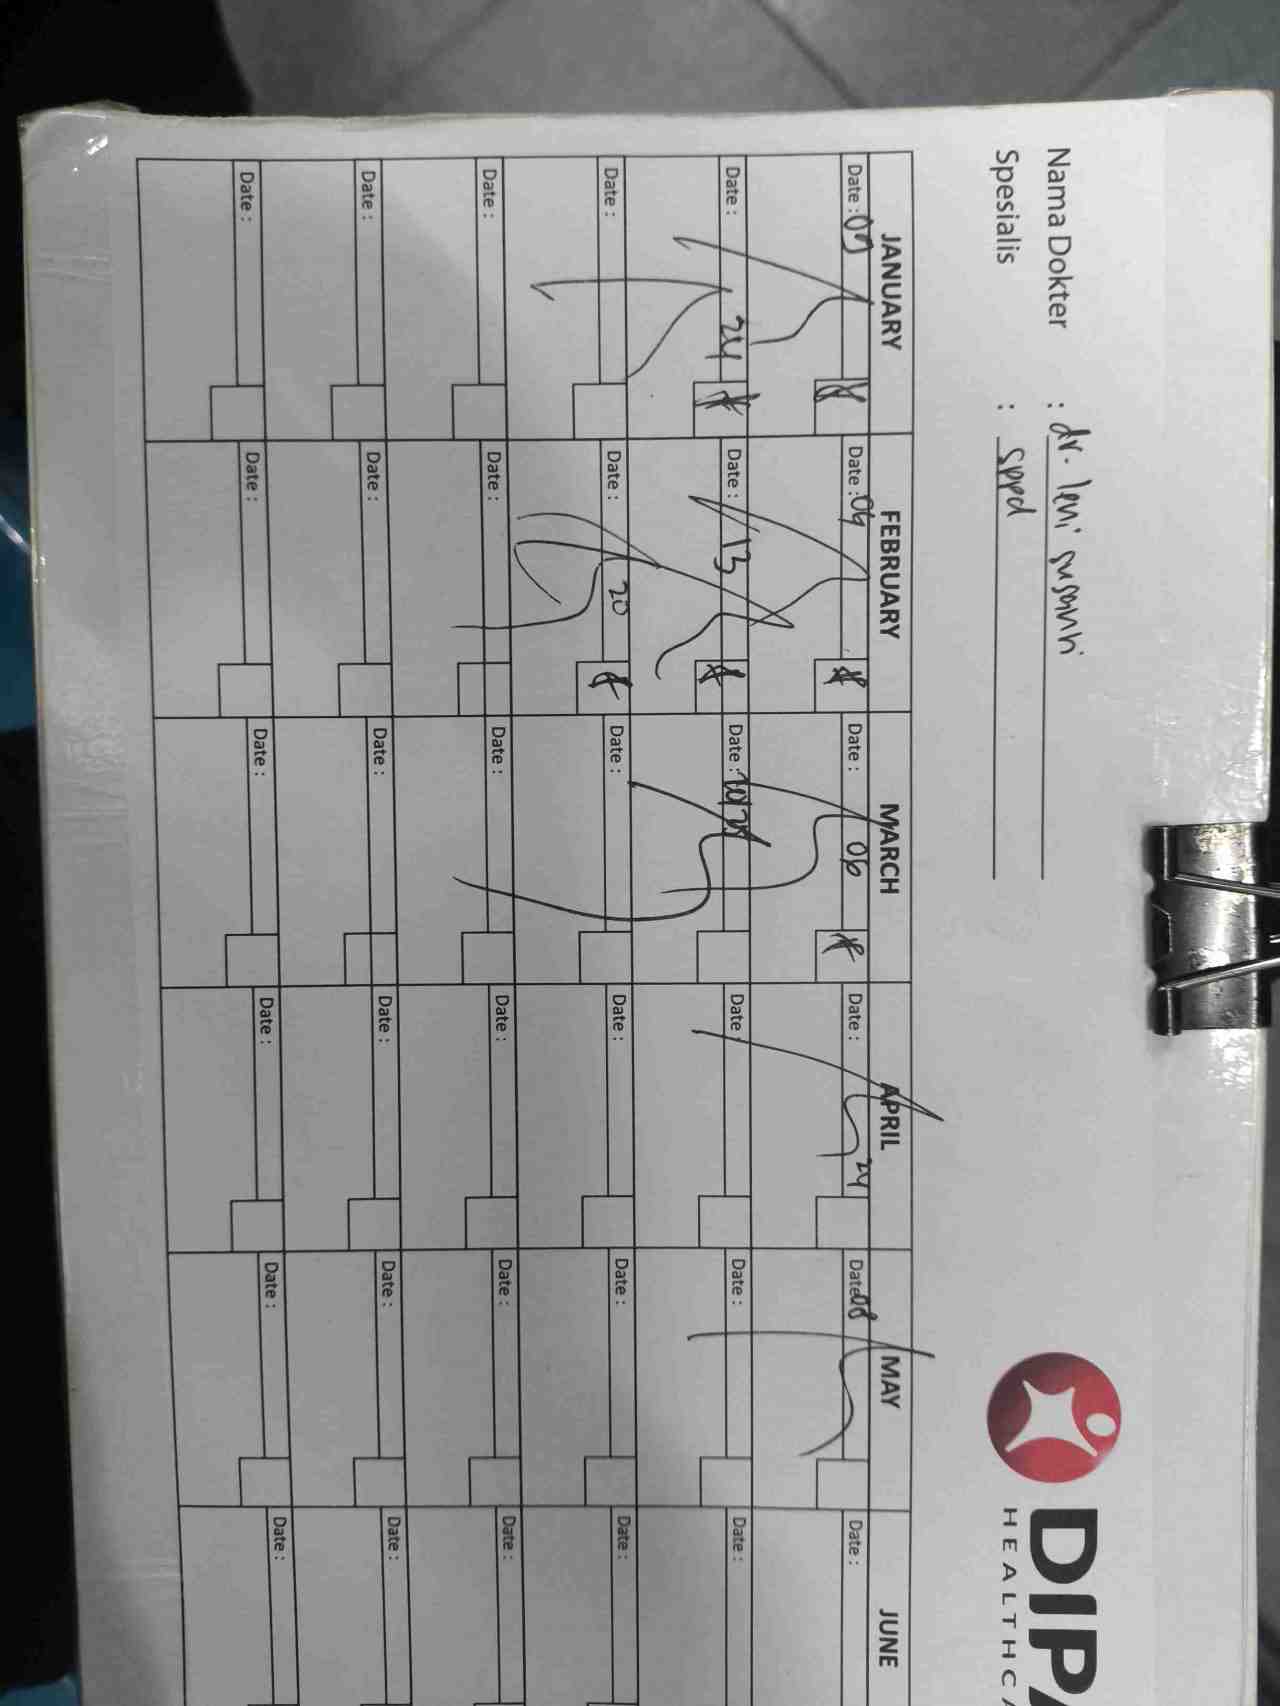 DIPA
HEALTHCA
Nama Dokter : dr. leni susanti
Spesialis : sppd
JANUARY FEBRUARY MARCH APRIL MAY JUNE
Date : 09 Date : 04 Date : 06 Date : 24 Date 08 Date :
Date : 24 Date : 13 Date : Date Date : Date :
Date : Date : 20 Date : Date : Date : Date :
Date : Date : Date : Date : Date : Date :
Date : Date : Date : Date : Date : Date :
Date : Date : Date : Date : Date : Date :